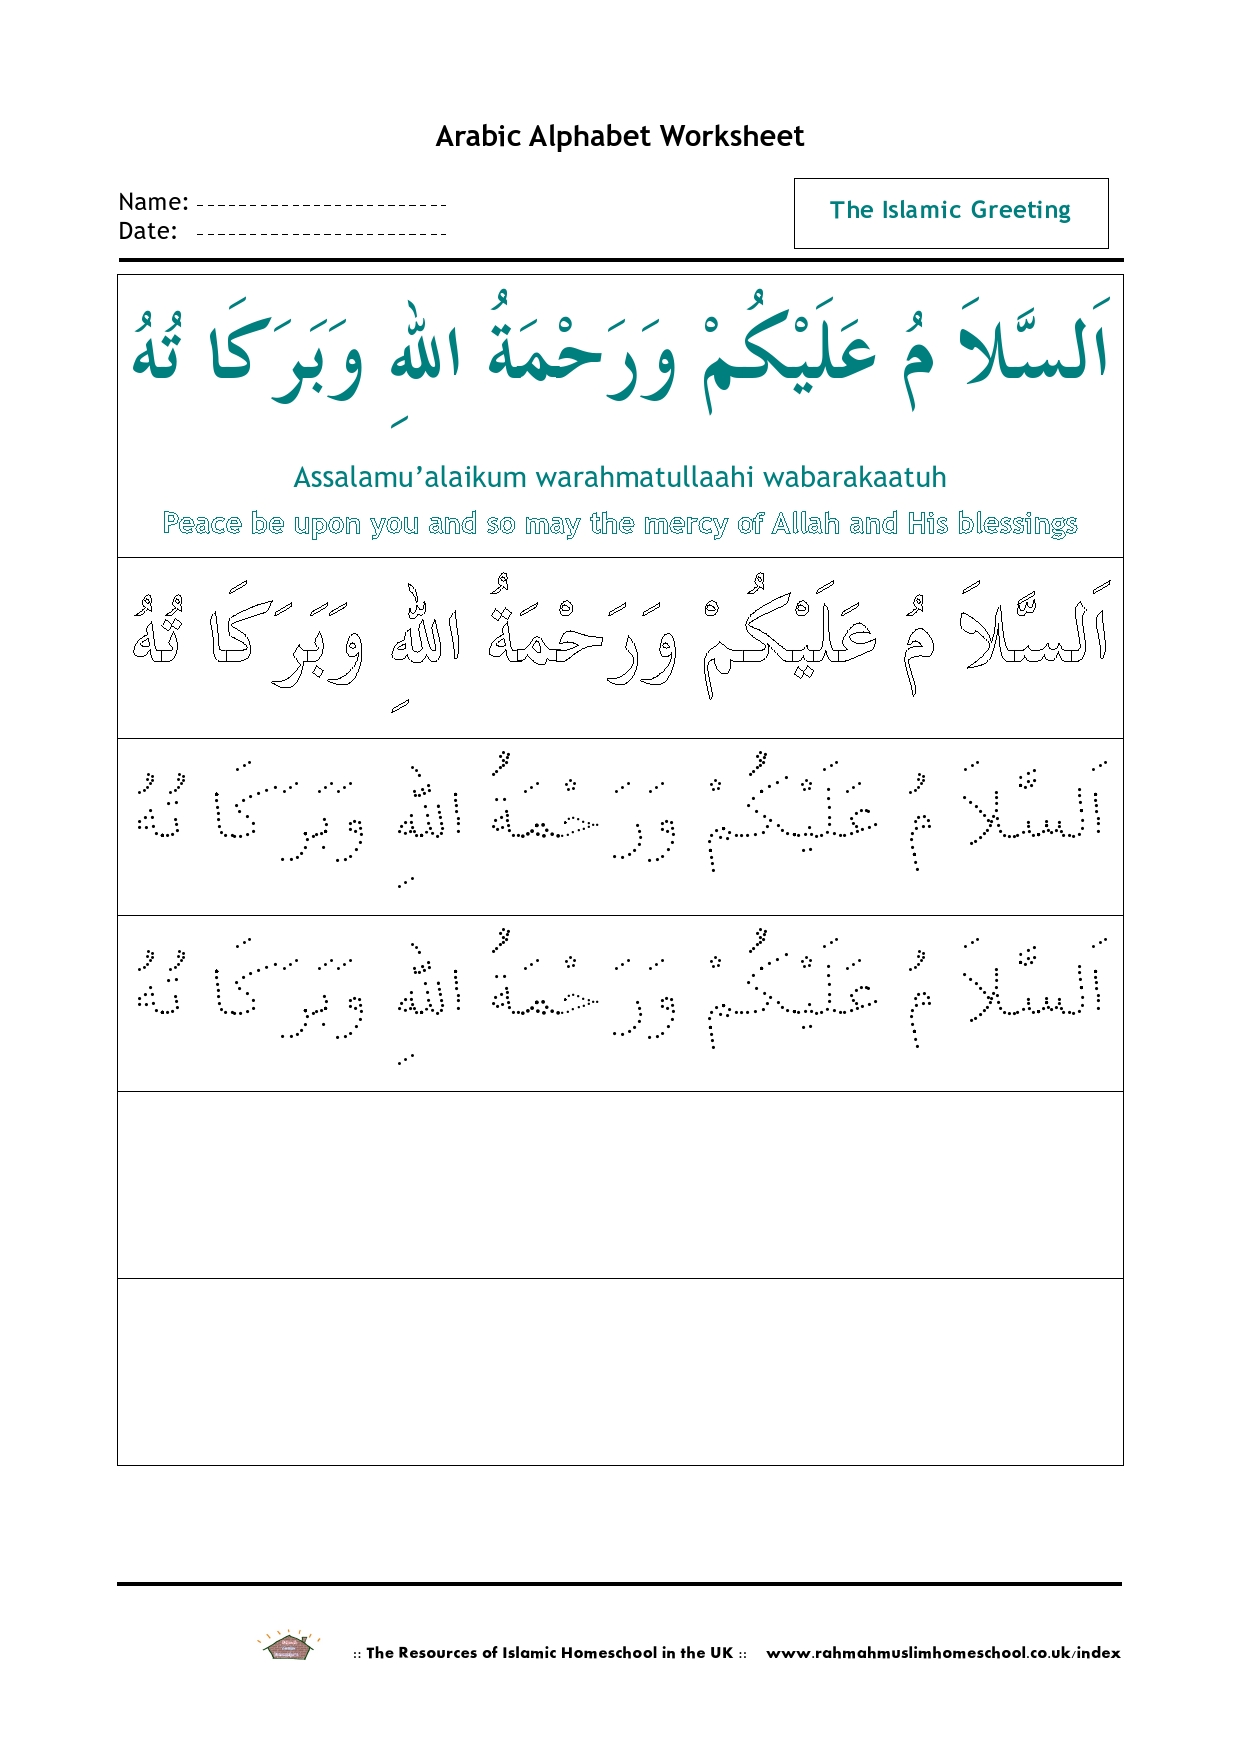 Arabic Alphabet Worksheet
Name:
The Islamic Greeting
Date:
اَلسَّلاَ مُ عَلَيْكُمْ وَرَحْمَةُ اللهِ وَبَرَكَا تُهُ
Assalamu’alaikum warahmatullaahi wabarakaatuh
Peace be upon you and so may the mercy of Allah and His blessings
اَلسَّلاَ مُ عَلَيْكُمْ وَرَحْمَةُ اللهِ وَبَرَكَا تُهُ
اَلسَّلاَ مُ عَلَيْكُمْ وَرَحْمَةُ اللهِ وَبَرَكَا تُهُ
اَلسَّلاَ مُ عَلَيْكُمْ وَرَحْمَةُ اللهِ وَبَرَكَا تُهُ
:: The Resources of Islamic Homeschool in the UK :: www.rahmahmuslimhomeschool.co.uk/index